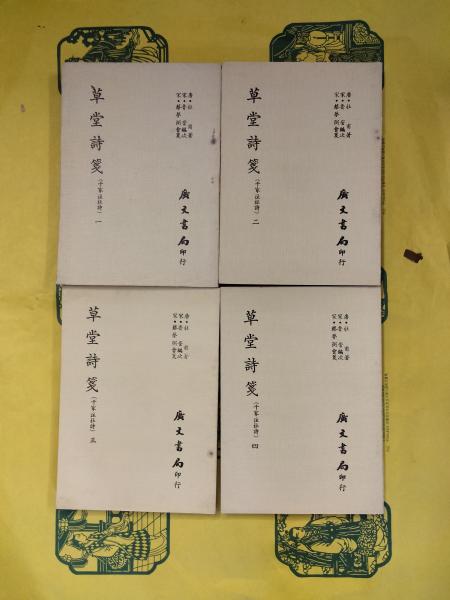 唐•杜甫著
宋•魯訔編次
宋•蔡夢弼會箋
草堂詩箋(千家注杜詩)一
廣文書局印行
唐•杜甫著
宋•魯訔編次
宋•蔡夢弼會箋
草堂詩箋(千家註杜詩)二
廣文書局印行
唐•杜甫著
宋•魯訔編次
宋•蔡夢弼會箋
草堂詩箋(千家註杜詩)三
廣文書局印行
唐•杜甫著
宋•魯訔編次
宋•蔡夢弼會箋
草堂詩箋(千家註杜詩)四
廣文書局印行